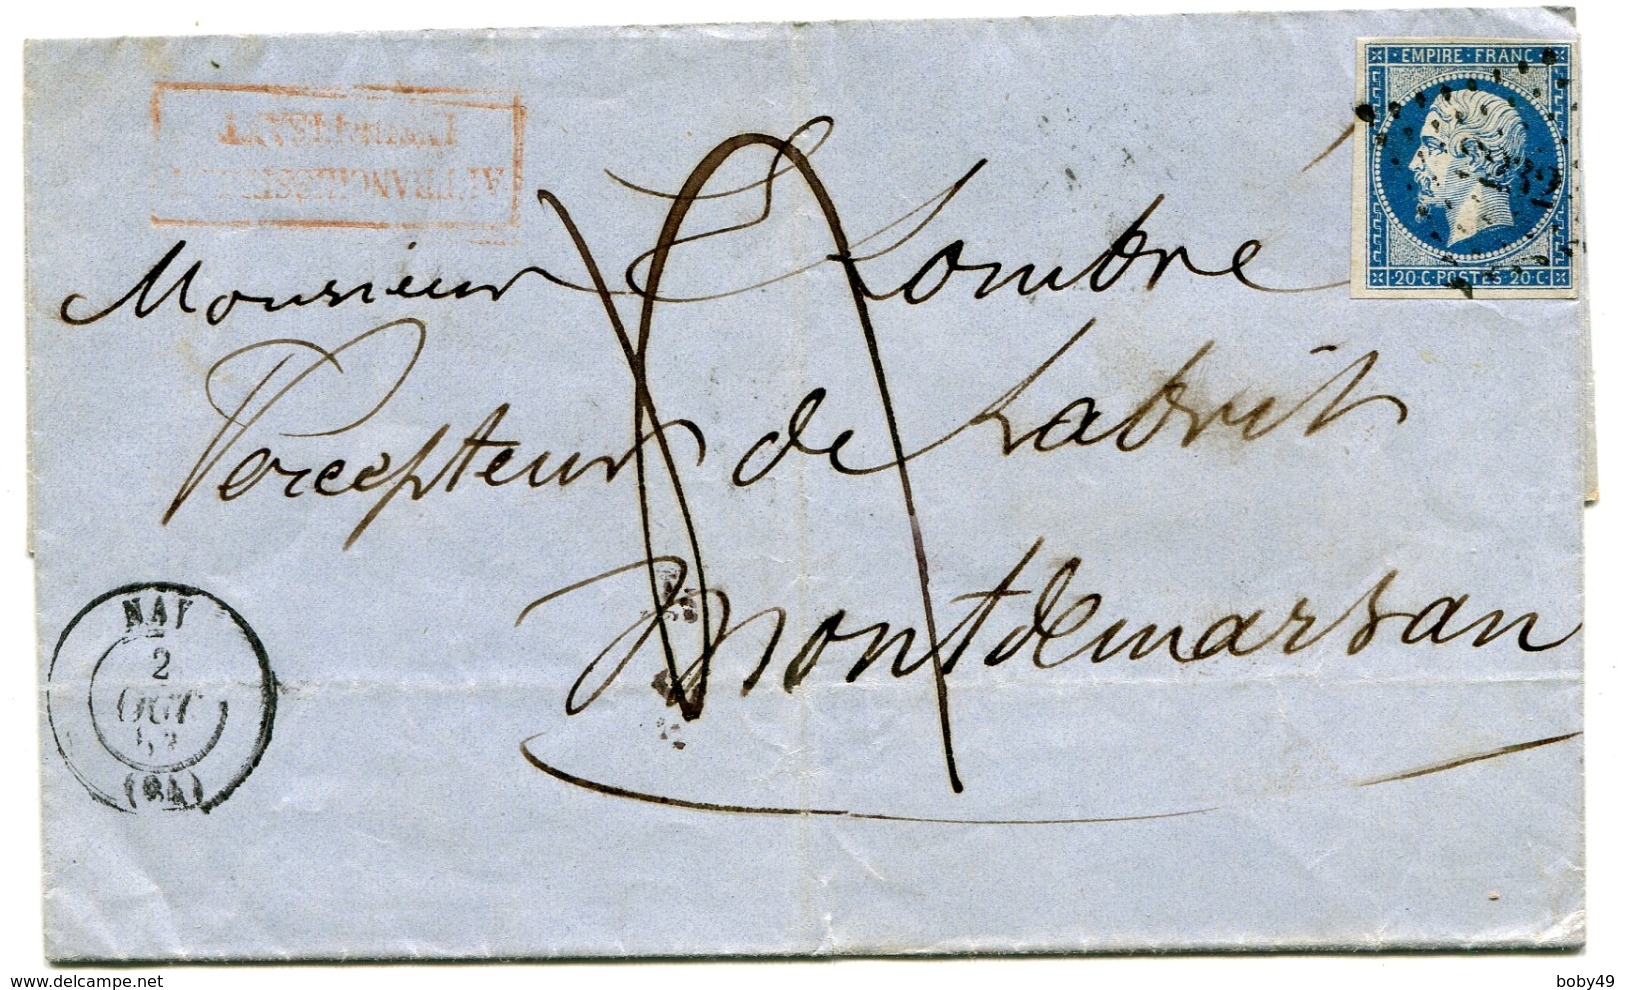 EMPIRE FRANC
20 C · POSTES · 20 C
AFFRANCHISSEMENT
INSUFFISANT
Monsieur Lombré
Percepteur de Labrit
Montdemarsan
NAY
2
OCT
(64)
delcampe.net
boby49